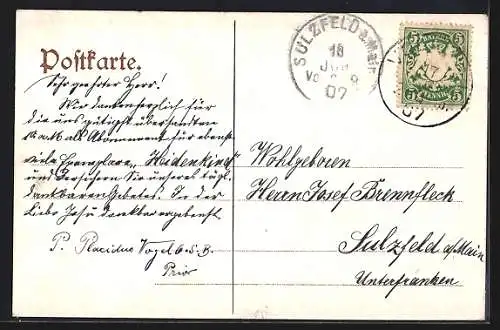 Postkarte.
Sehr geehrter Herr!
Wir danken herzlich für
die uns gütigst übersandten
Mark als Abonnement für ebenso
viele Exemplare „Heidenkind"
und versichern Sie unseres tägl.
dankbaren Gebetes. In der
Liebe Jesu dankbar ergebenst
P. Placidus Vogel O.S.B.
Prior
SULZFELD a. Main
18
JUN
07
BAYERN
5 5
PFENNIG
07
Wohlgeboren
Herrn Josef Brennfleck
Sulzfeld a/Main
Unterfranken